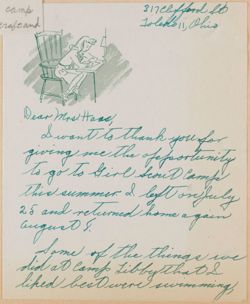 camp
craft and
317 Clifford St
Toledo 11, Ohio
Dear Mrs Haas,
I want to thank you for
giving me the opportunity
to go to Girl Scout Camp
this summer. I left on July
25 and returned home again
August 8.
Some of the things we
did at Camp Libbey that I
liked best were swimming,